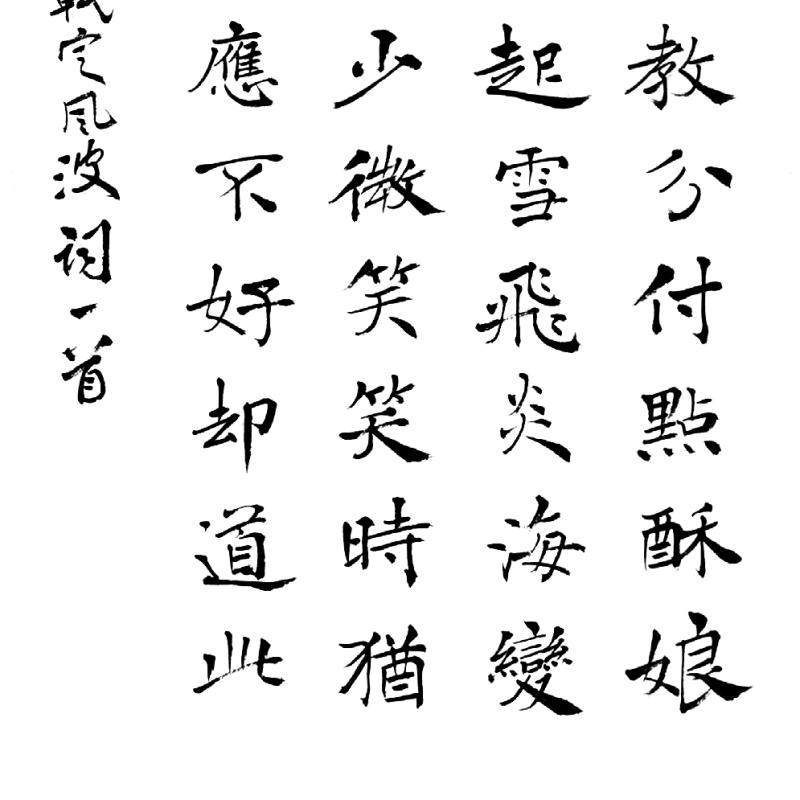 教分付點酥娘
起雪飛炎海變
少微笑笑時猶
應不好却道此
軾定風波詞一首